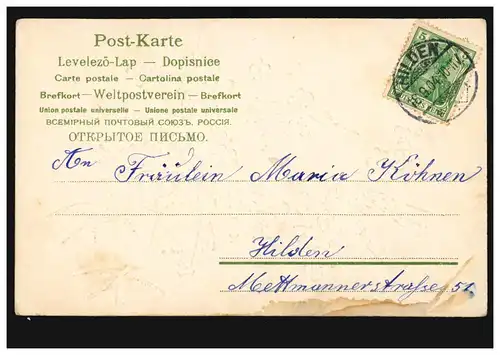 Post-Karte
Levelezö-Lap — Dopisnice
Carte postale — Cartolina postale
Brefkort — Weltpostverein — Brefkort
Union postale universelle — Unione postale universale
ВСЕМІРНЫЙ ПОЧТОВЫЙ СОЮЗЪ. РОССІЯ.
ОТКРЫТОЕ ПИСЬМО.
HILDEN
5
An Fräulein Maria Köhnen
Hilden
Mettmannerstrasse 51